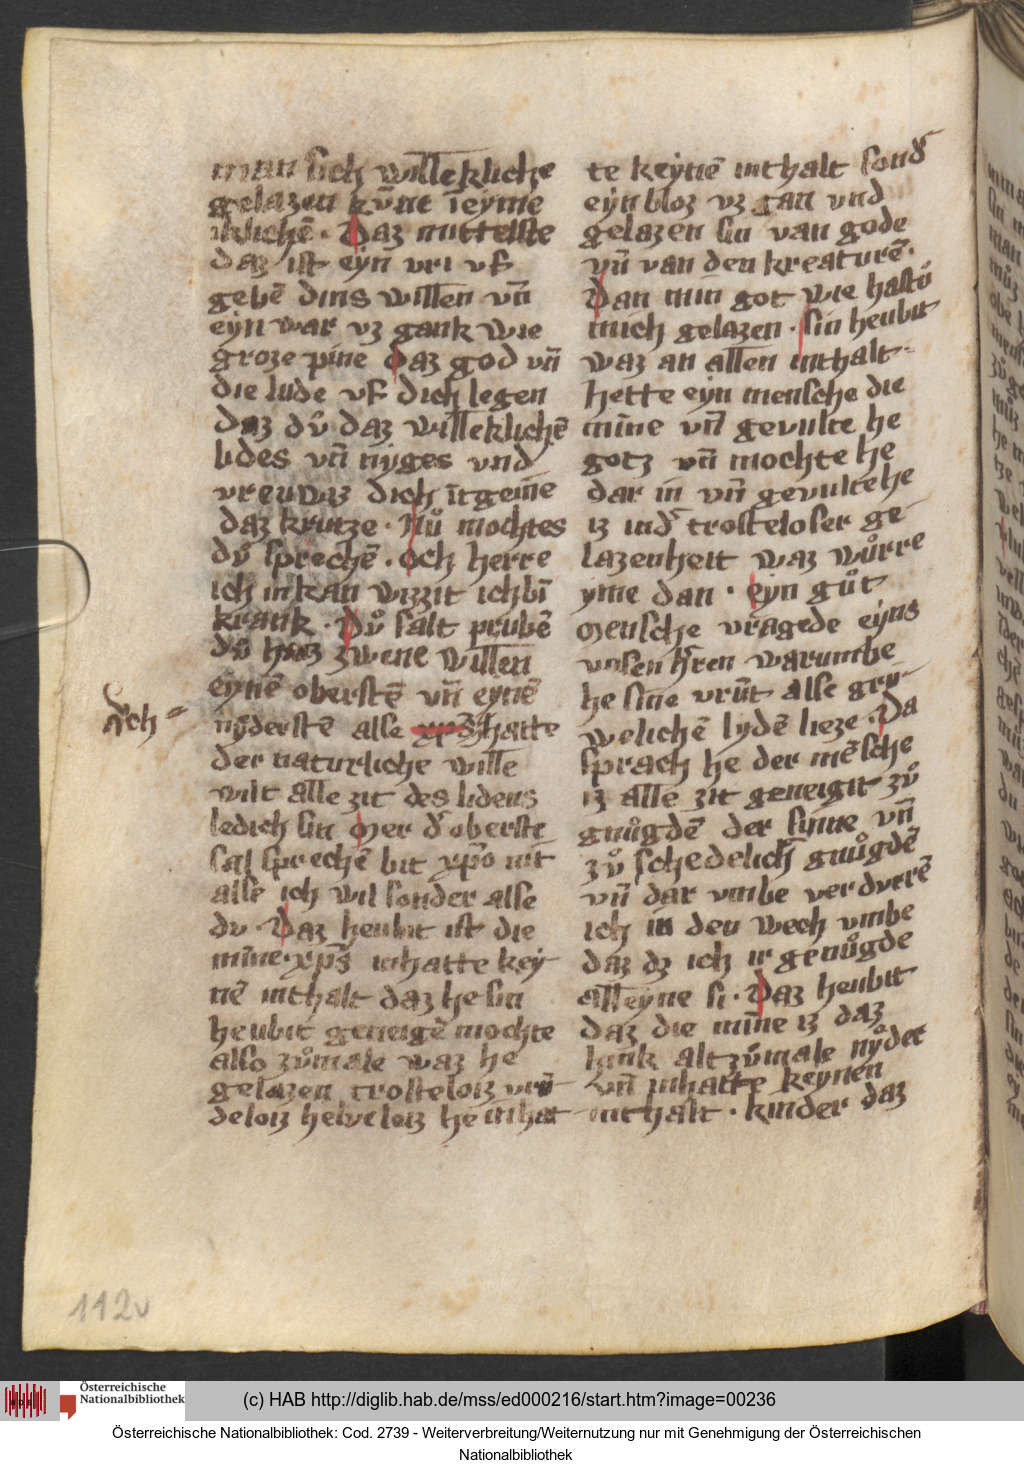 man sich willekliche
gelazen kv̄nt ieyme
iklichē · Daz mittelste
daz ist eyn̄ vri vf
gebē dins willen vn̄
eyn war vz gank wie
groze pine daz god vn̄
die lude vf dich legen
daz dv̊ daz willeklichē
lides vn̄ niges vnd
dich
daz krutze · Nv̊ mochtes
dv̊ sprechē · och herre
ich inkan wizzit ich bī
krank · Dv̊ salt prubē
dv̊ haz zwene willen
eynē oberstē vn̄ eynē
nyderstē alse hatte
vch =
der naturliche wille
wilt alle zit des lidens
ledich sin Mer d' oberste
sal sprechē bit xp̄o nit
alse ich wil sonder alse
dv · Daz heubit ist die
mīne · xp̄s inhatte key
nē inthalt daz he sin
heubit geneigē mochte
also zv̊male waz he
gelazen trosteloiz vrū
deloiz helveloiz he inhat
te keynē inthalt sond'
eyn bloz vz gan vnd
gelazen sin van gode
vn̄ van den kreaturē ·
Dan min got wie hastv̊
mich gelazen · sin heubit
waz an allen inthalt
hette eyn mensche die
mīne vn̄ gevulte he
gotz vn̄ mochte he
dar in vn̄ gevulte he
iz ind' trosteloser ge
lazenheit waz wv̊rre
yme dan · eyn gv̊t
Mensche vragede eyns
vnsen h'ren warumbe
he sine vrūt alse gry
welichē lydē lieze · Da
sprach he der mēsche
iz alle zit geneigit zv̊
gnv̊gdē der sinne vn̄
zv̊ schedelich' gnv̊gdē
vn̄ dar vmbe verdvrē
ich in den wech vmbe
daz dz ich ir genv̊gde
alleyne si · Daz heubit
daz die mīne iz daz
sank alt zv̊male nyd'
vn̄ inhatte keynen
inthalt · kinder daz
112v
Österreichische
Nationalbibliothek
(c) HAB http://diglib.hab.de/mss/ed000216/start.htm?image=00236
Österreichische Nationalbibliothek: Cod. 2739 - Weiterverbreitung/Weiternutzung nur mit Genehmigung der Österreichischen
Nationalbibliothek